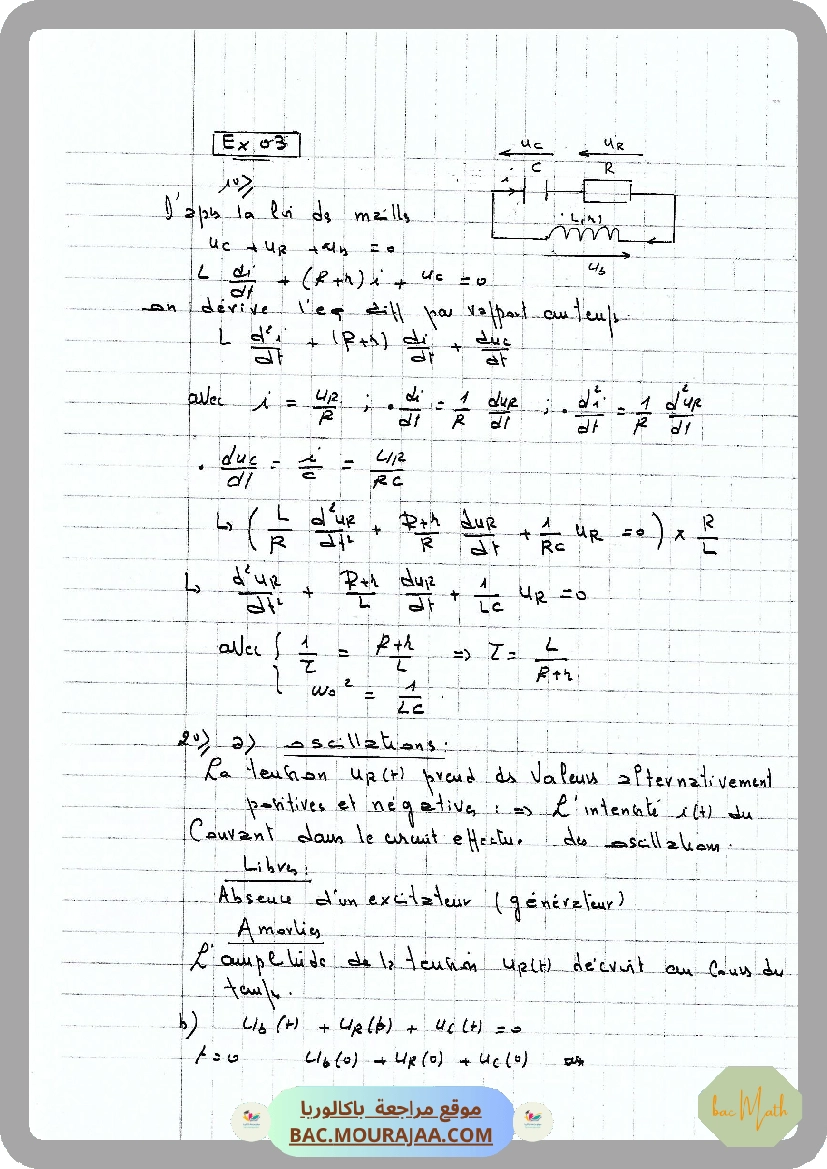 Ex 03
uc uR
i C R
L(r)
ub
1°)
D'aprs la loi ds maills
uc + uR + ub = 0
L di/dt + (R+r) i + uc = 0
on dérive l'eq diff par rapport au temps
L d²i/dt + (R+r) di/dt + duc/dt
avec i = uR/R ; • di/dt = 1/R duR/dt ; • d²i/dt = 1/R d²uR/dt
• duc/dt = i/c = uR/RC
↳ ( L/R d²uR/dt² + R+r/R duR/dt + 1/RC uR = 0 ) × R/L
↳ d²uR/dt² + R+r/L duR/dt + 1/LC uR = 0
avec { 1/τ = R+r/L => τ = L/R+r
ω0² = 1/LC
2°) a) oscillations :
La tension uR(t) prend ds valeurs alternativement
positives et négatives : => L'intensité i(t) du
Courant dans le circuit effectue des oscillations.
Libres :
Absence d'un excitateur (générateur)
Amorties
L'amplitude de la tension uR(t) décroit au cours du
temps.
b) ub(t) + uR(t) + uc(t) = 0
t = 0 ub(0) + uR(0) + uc(0)
موقع مراجعة باكالوريا
BAC.MOURAJAA.COM
bac Math